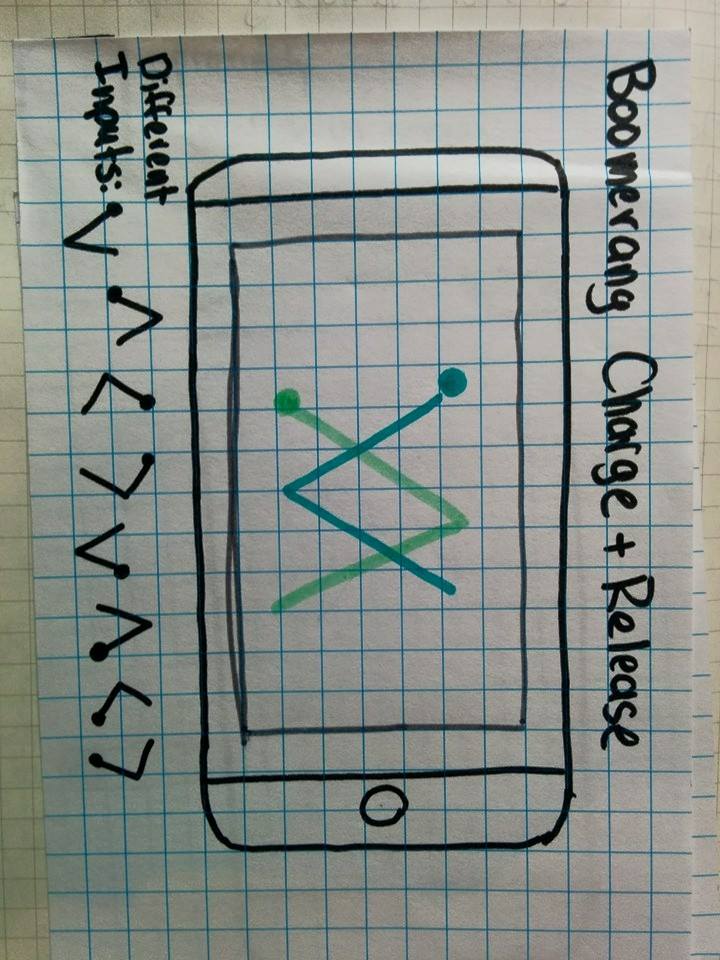 Boomerang Charge + Release
Different
Inputs: